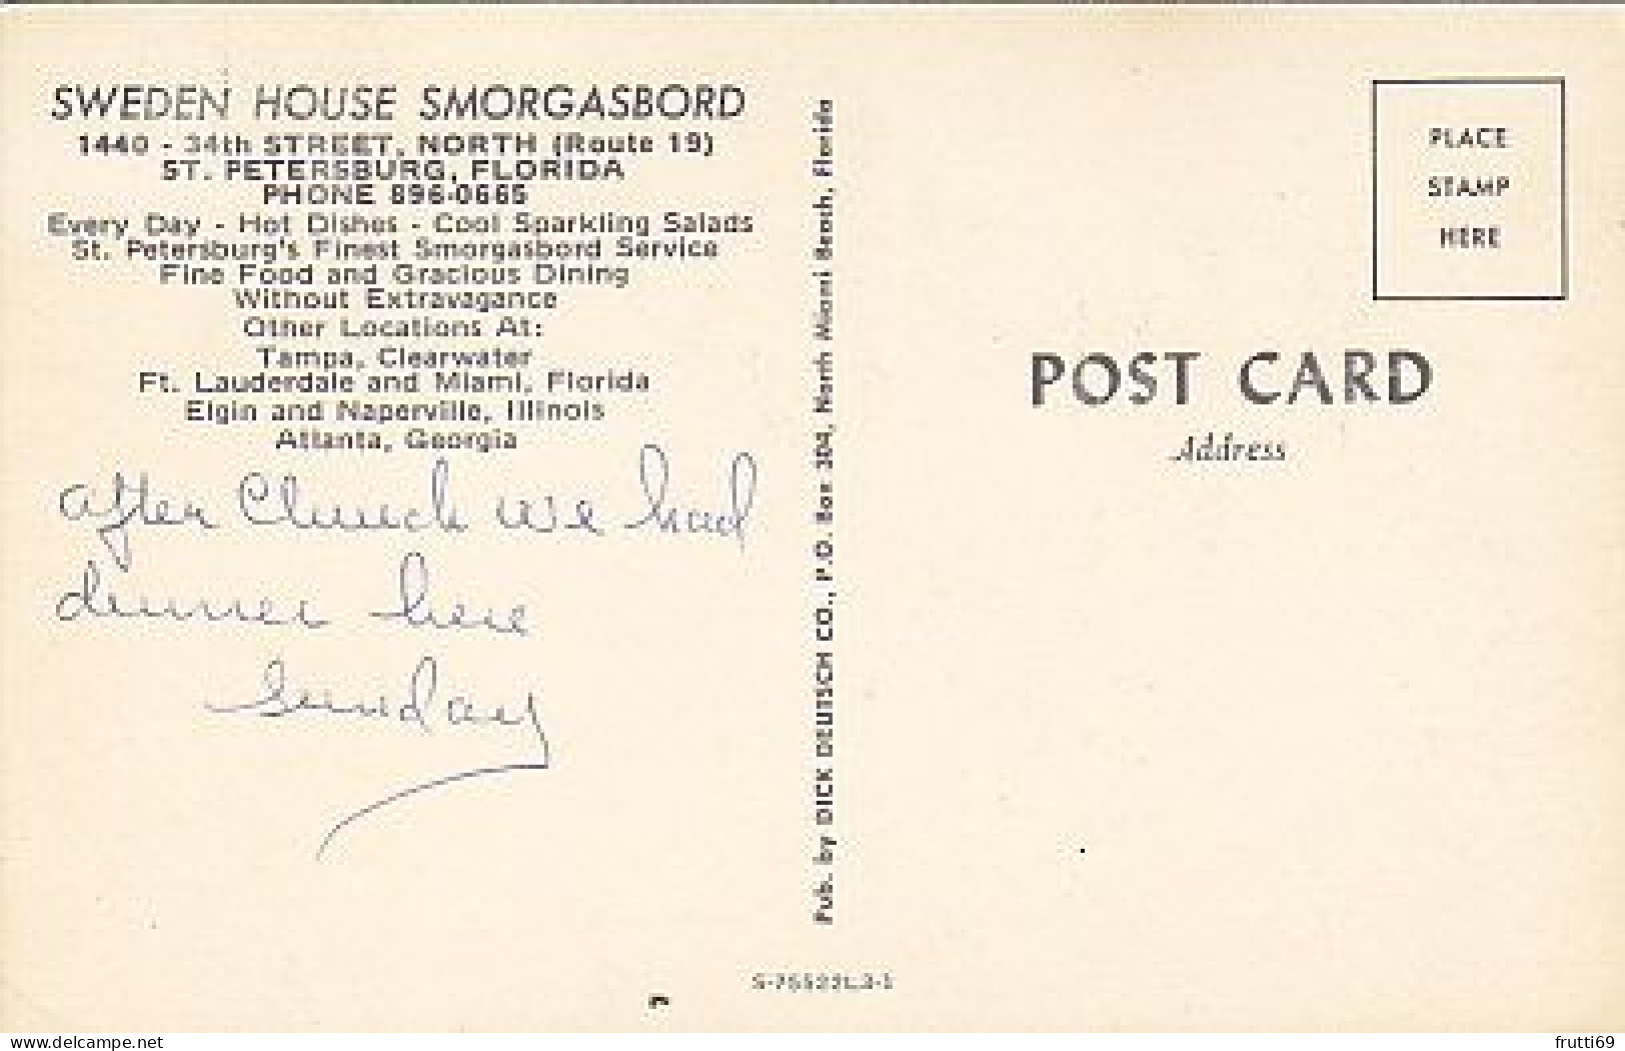 SWEDEN HOUSE SMORGASBORD
1440 - 34th STREET, NORTH (Route 19)
ST. PETERSBURG, FLORIDA
PHONE 896-0665
Every Day - Hot Dishes - Cool Sparkling Salads
St. Petersburg's Finest Smorgasbord Service
Fine Food and Gracious Dining
Without Extravagance
Other Locations At:
Tampa, Clearwater
Ft. Lauderdale and Miami, Florida
Elgin and Naperville, Illinois
Atlanta, Georgia
after Church we had
dinner here
Sunday
Pub. by DICK DEUTSCH CO., P.O. Box 304, North Miami Beach, Florida
PLACE
STAMP
HERE
POST CARD
Address
S-75522L,3-1
www.delcampe.net
frutti69